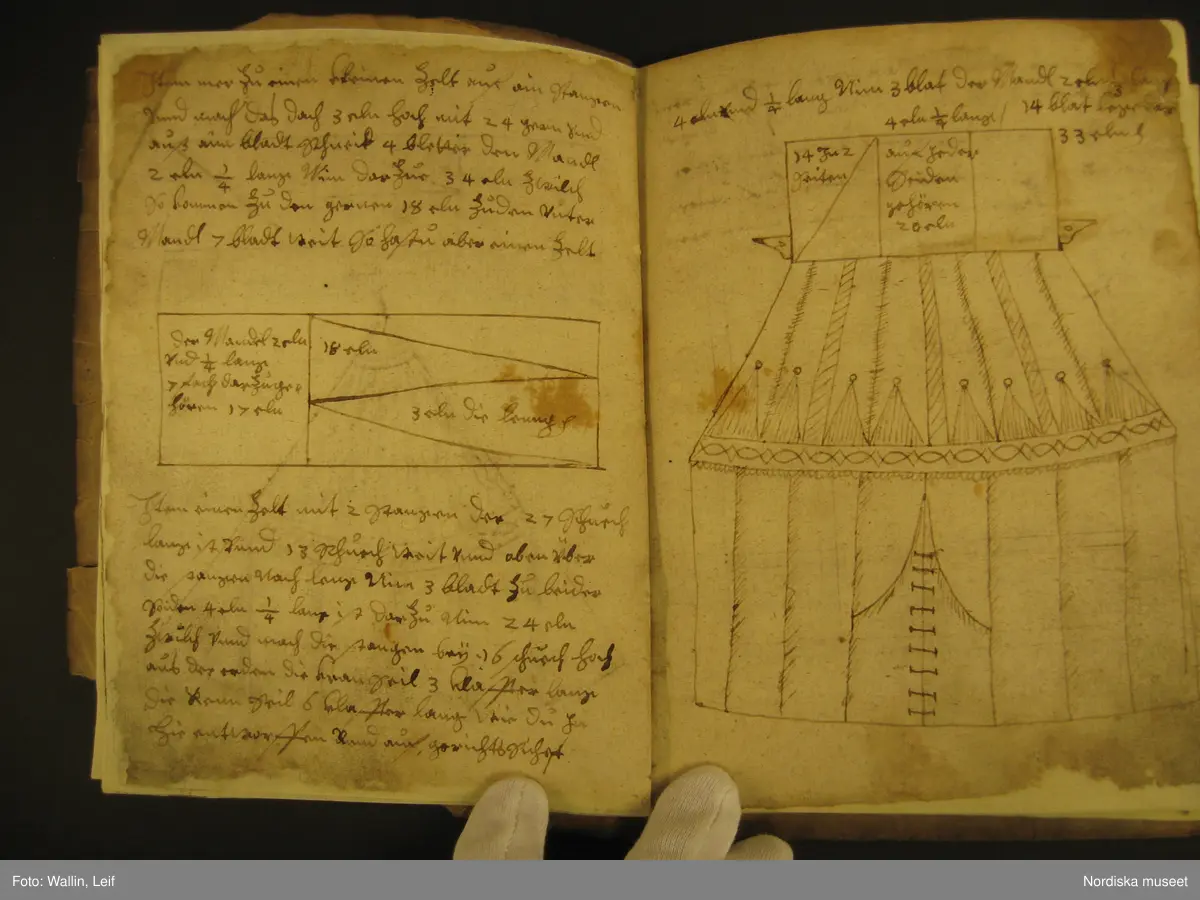 Item mer zu einen kleinen Zelt auf ain Stangen
Vnd mach das dach 3 eln hoch mit 24 geren Vnd
aus aim bladt schneid 4 bletter den Mandl
2 eln 1/4 lang Nim darzue 34 eln Zwilch
So komen Zu den gernen 18 eln Zu den Vnter
Mandl 7 bladt weit So hastu aber einen Zelt
der Mandel 2 eln
Vnd 1/4 lang
7 fach darzu ge
hören 17 eln
18 eln
3 eln die leung
Item einen Zelt mit 2 Stangen der 27 Schuech
lang ist Vnnd 13 Schuech weit Vnnd oben über
die stangen Nach leng Nim 3 bladt Zu beider
seiden 4 eln 1/4 lang ist darzu Nim 24 eln
Zwilch Vnnd mach die stangen bey 16 schuech hoch
aus der erden die seil 3 klaffter lang
die seil 6 klaffter lang wie du in
hie entworffen Vnnd auf gericht sichst
4 eln vnd 1/4 lang Nim 3 blat der Mandl 2 eln 1/3 lang
4 eln 1/4 lang / 14 blat
33 eln
14 Zu 2
Seiten
auf Jeder
Seiden
gehören
20 eln
Foto: Wallin, Leif
Nordiska museet